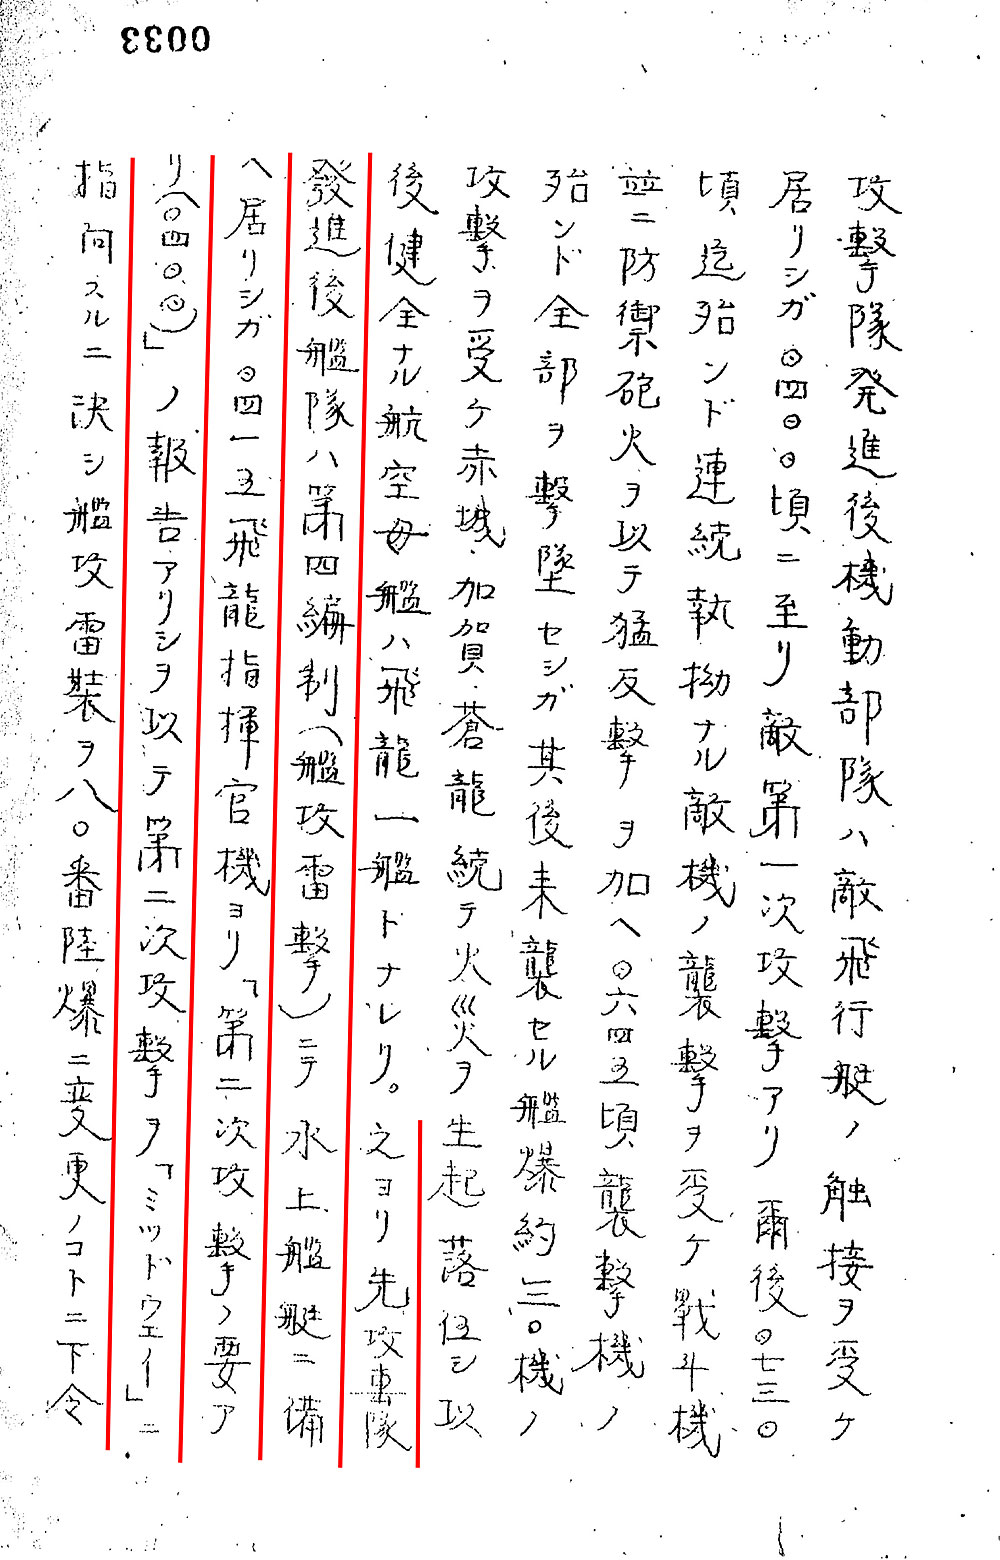 0033
攻撃隊発進後機動部隊ハ敵飛行艇ノ触接ヲ受ケ
居リシガ〇四〇〇頃ニ至リ敵第一次攻撃アリ爾後〇七三〇
頃迄殆ンド連続執拗ナル敵機ノ襲撃ヲ受ケ戰斗機
並ニ防禦砲火ヲ以テ猛反撃ヲ加ヘ〇六四五頃襲撃機ノ
殆ンド全部ヲ撃墜セシガ其後来襲セル艦爆約三〇機ノ
攻撃ヲ受ケ赤城.加賀.蒼龍続テ火災ヲ生起落伍シ以
後健全ナル航空母艦ハ飛龍一艦トナレリ。之ヨリ先攻撃隊
發進後艦隊ハ第四編制(艦攻雷撃)ニテ水上艦艇ニ備
ヘ居リシガ〇四一五飛龍指揮官機ヨリ「第二次攻撃ノ要ア
リ(〇四〇〇)」ノ報告アリシヲ以テ第二次攻撃ヲ「ミッドウェイ」ニ
指向スルニ決シ艦攻雷装ヲ八〇番陸爆ニ変更ノコトニ下令